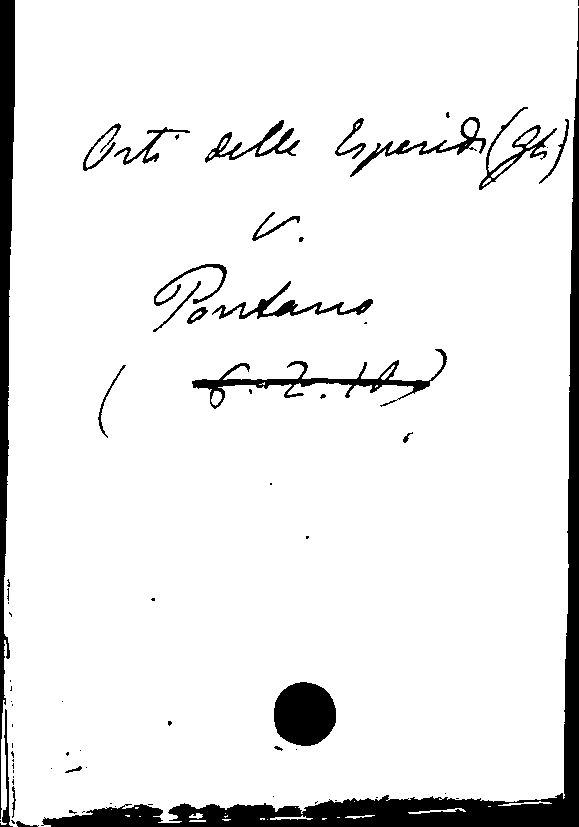 Orti delle Esperidi (Gli)
v.
Pontano
(